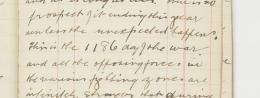 prospect of it ending this year
unless the unexpected happens.
This is the 1186 day of the war
and all the opposing forces in
the various fighting zones are
infinitely stronger that during